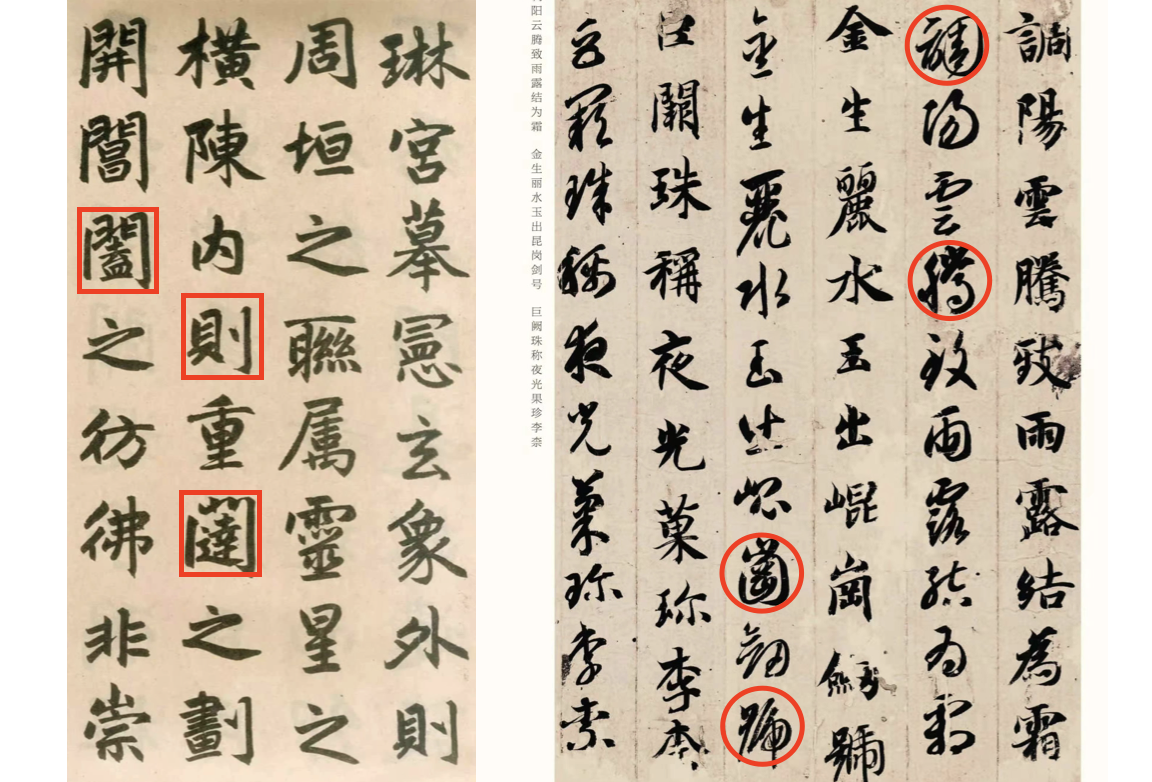 琳宮摹憲玄象外則
周垣之聯属靈星之
橫陳内則重闥之劃
開閶闔之彷彿非崇
阳云腾致雨露结为霜 金生丽水玉出昆岗剑号 巨阙珠称夜光果珍李柰
調陽雲騰致雨露結為霜
調陽雲騰致雨露結為霜
金生麗水玉出崐崗劒號
金生麗水玉出崐崗劒號
巨闕珠稱夜光菓珎李柰
巨闕珠稱夜光菓珎李柰